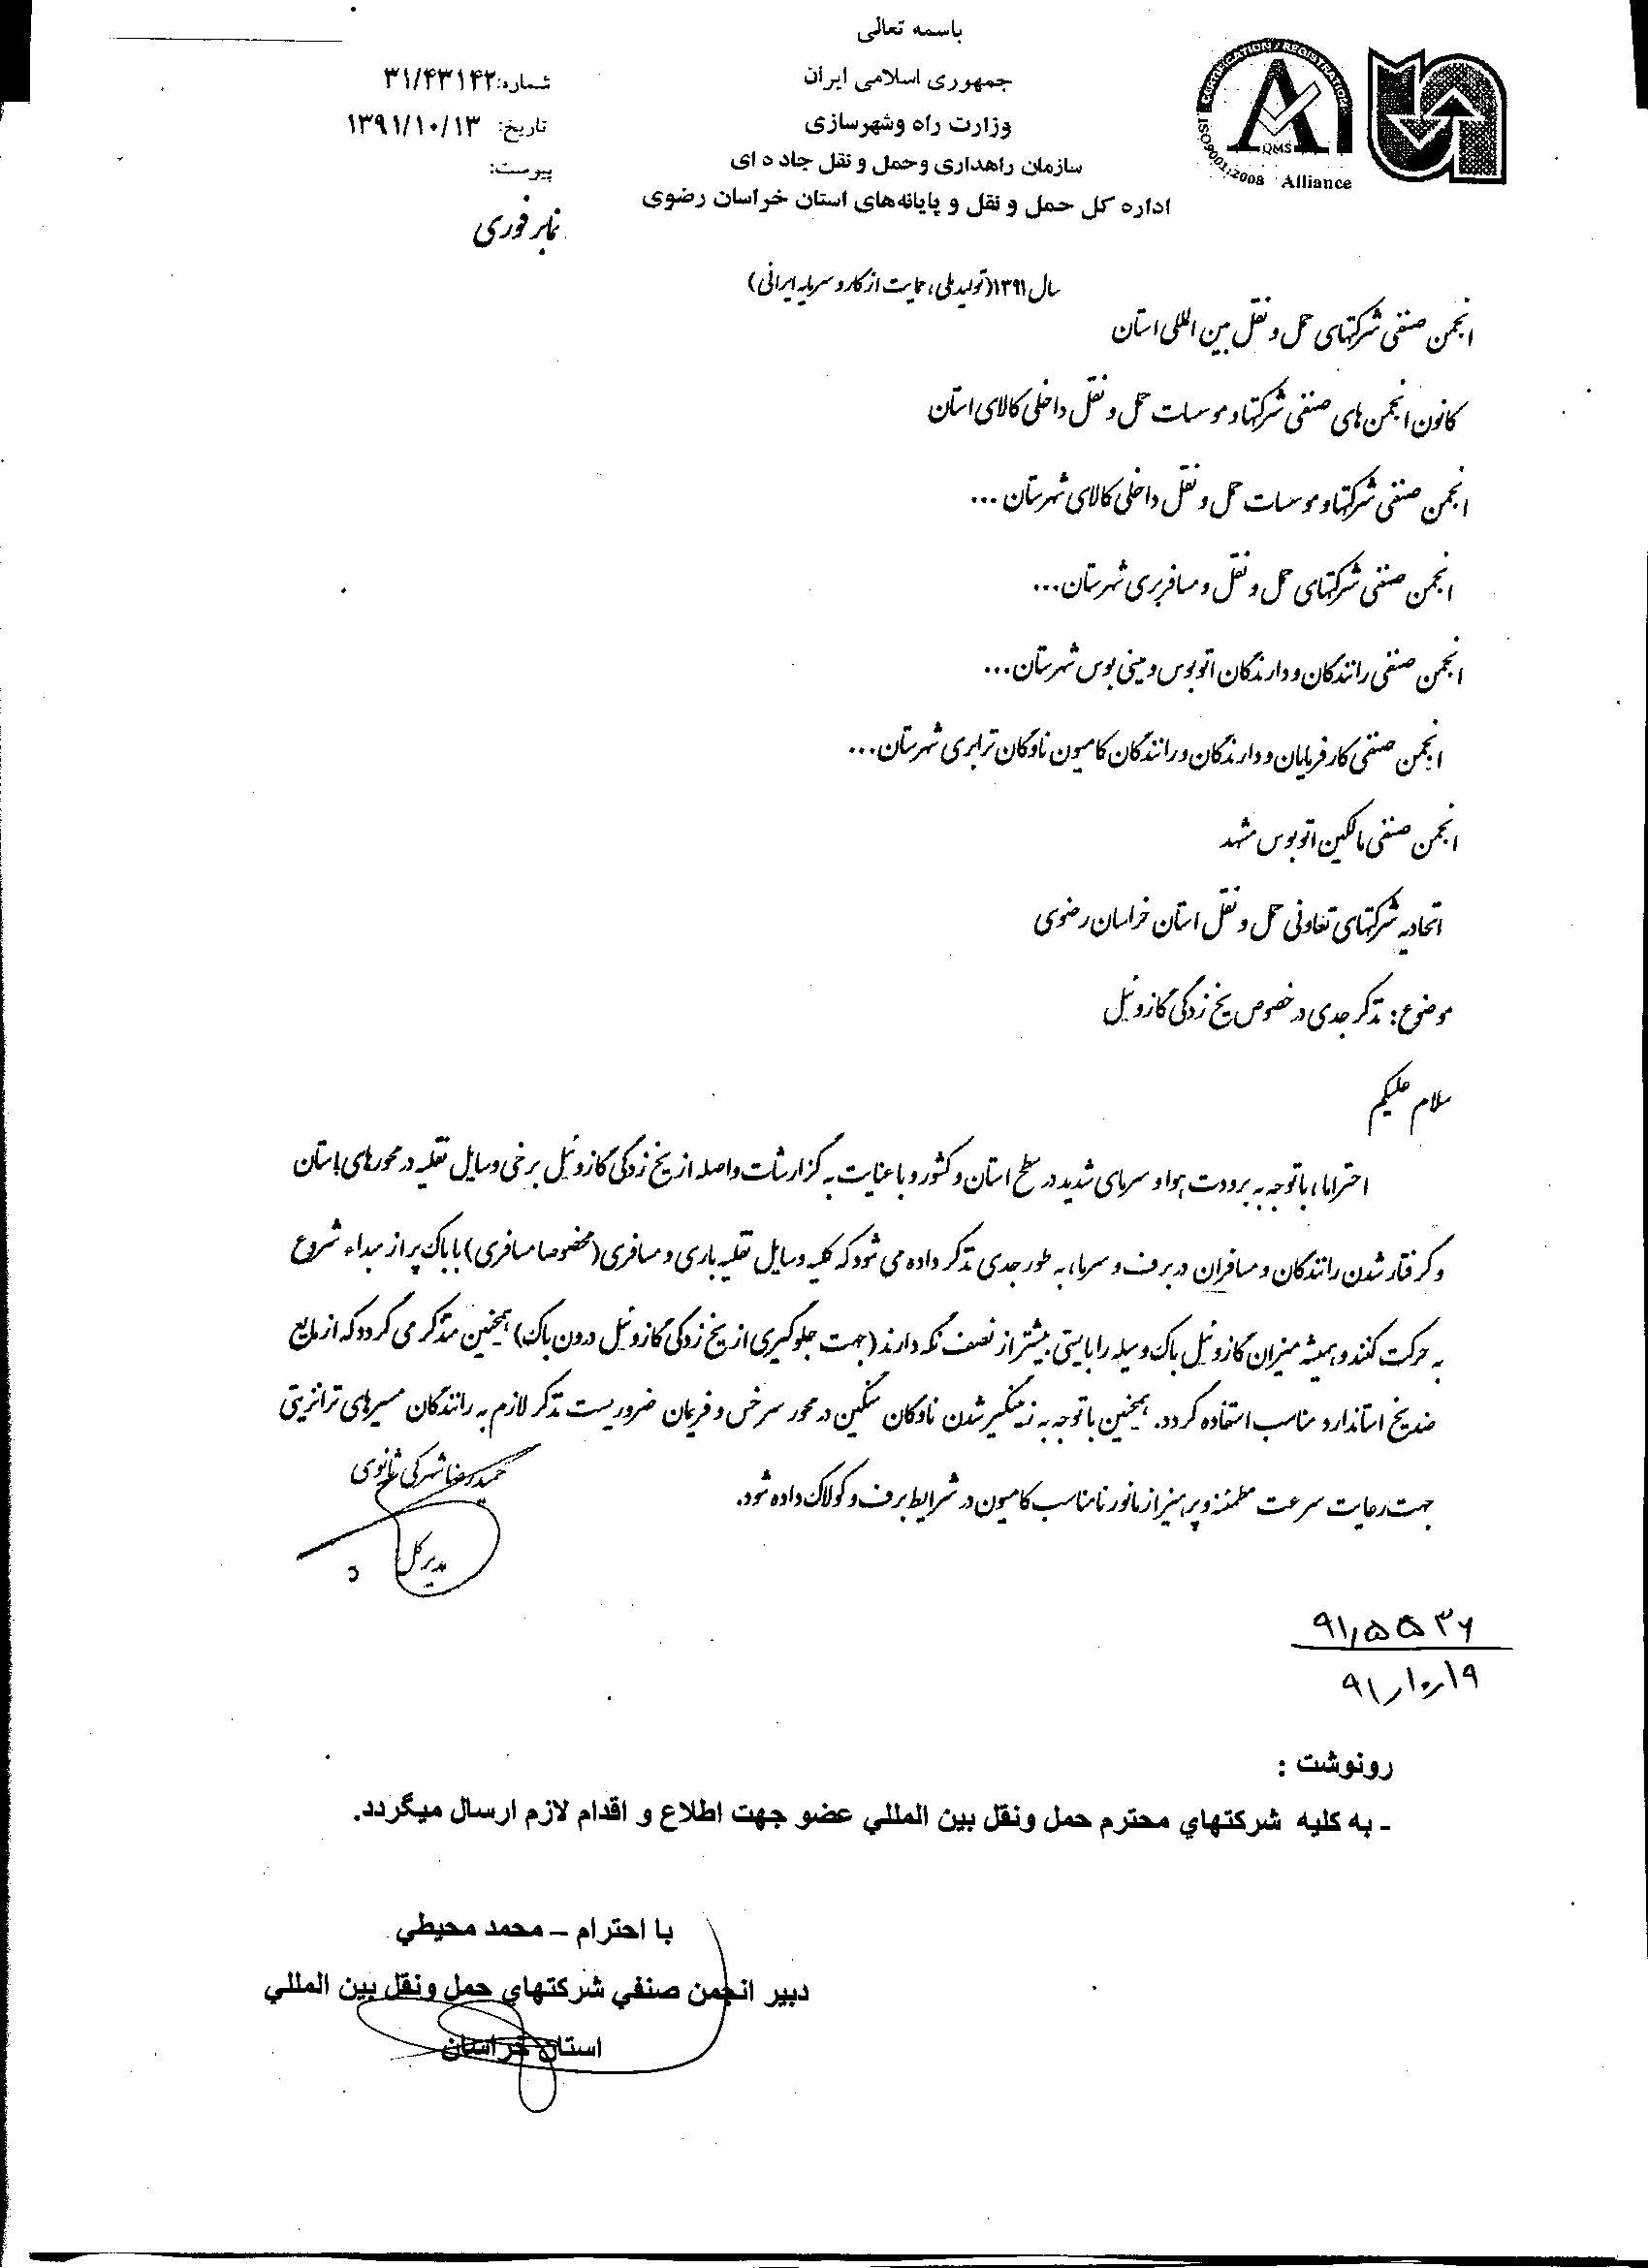 باسمه تعالی
جمهوری اسلامی ایران
وزارت راه وشهرسازی
سازمان راهداری وحمل و نقل جاده ای
اداره کل حمل و نقل و پایانه‌های استان خراسان رضوی
CERTIFICATION / REGISTRATION
ISO9001:2008
QMS
Alliance
شماره: ۳۱/۴۳۱۴۲
تاریخ: ۱۳۹۱/۱۰/۱۳
پیوست:
نمابر فوری
سال ۱۳۹۱(تولید ملی، حمایت از کار و سرمایه ایرانی)
انجمن صنفی شرکتهای حمل و نقل بین المللی استان
کانون انجمن های صنفی شرکتها و موسسات حمل و نقل داخلی کالای استان
انجمن صنفی شرکتها و موسسات حمل و نقل داخلی کالای شهرستان ...
انجمن صنفی شرکتهای حمل و نقل و مسافربری شهرستان...
انجمن صنفی رانندگان و دارندگان اتوبوس و مینی بوس شهرستان...
انجمن صنفی کارفرمایان و دارندگان و رانندگان کامیون ناوگان ترابری شهرستان...
انجمن صنفی مالکین اتوبوس مشهد
اتحادیه شرکتهای تعاونی حمل و نقل استان خراسان رضوی
موضوع: تذکر جدی در خصوص یخ زدگی گازوئیل
سلام علیکم
احتراما، با توجه به برودت هوا و سرمای شدید در سطح استان و کشور و با عنایت به گزارشات واصله از یخ زدگی گازوئیل برخی وسایل نقلیه در محورهای استان
و گرفتار شدن رانندگان و مسافران در برف و سرما، به طور جدی تذکر داده می شود که کلیه وسایل نقلیه باری و مسافری (مخصوصا مسافری) با باک پر از مبداء شروع
به حرکت کنند و همیشه میزان گازوئیل باک وسیله را بایستی بیشتر از نصف نگه دارند (جهت جلوگیری از یخ زدگی گازوئیل درون باک) همچنین متذکر می گردد که از مایع
ضدیخ استاندارد مناسب استفاده گردد. همچنین با توجه به زمینگیر شدن ناوگان سنگین در محور سرخس و فریمان ضروریست تذکر لازم به رانندگان مسیرهای ترانزیتی
جهت رعایت سرعت مطمئنه و پرهیز از مانور نامناسب کامیون در شرایط برف و کولاک داده شود.
حمیدرضا شرکی ثانوی
مدیر کل
۹۱٫۵۵۳۶
۹۱٫۱۰٫۱۹
رونوشت :
- به کلیه شرکتهاي محترم حمل ونقل بین المللي عضو جهت اطلاع و اقدام لازم ارسال میگردد.
با احترام – محمد محیطي
دبیر انجمن صنفي شرکتهاي حمل ونقل بین المللي
استان خراسان